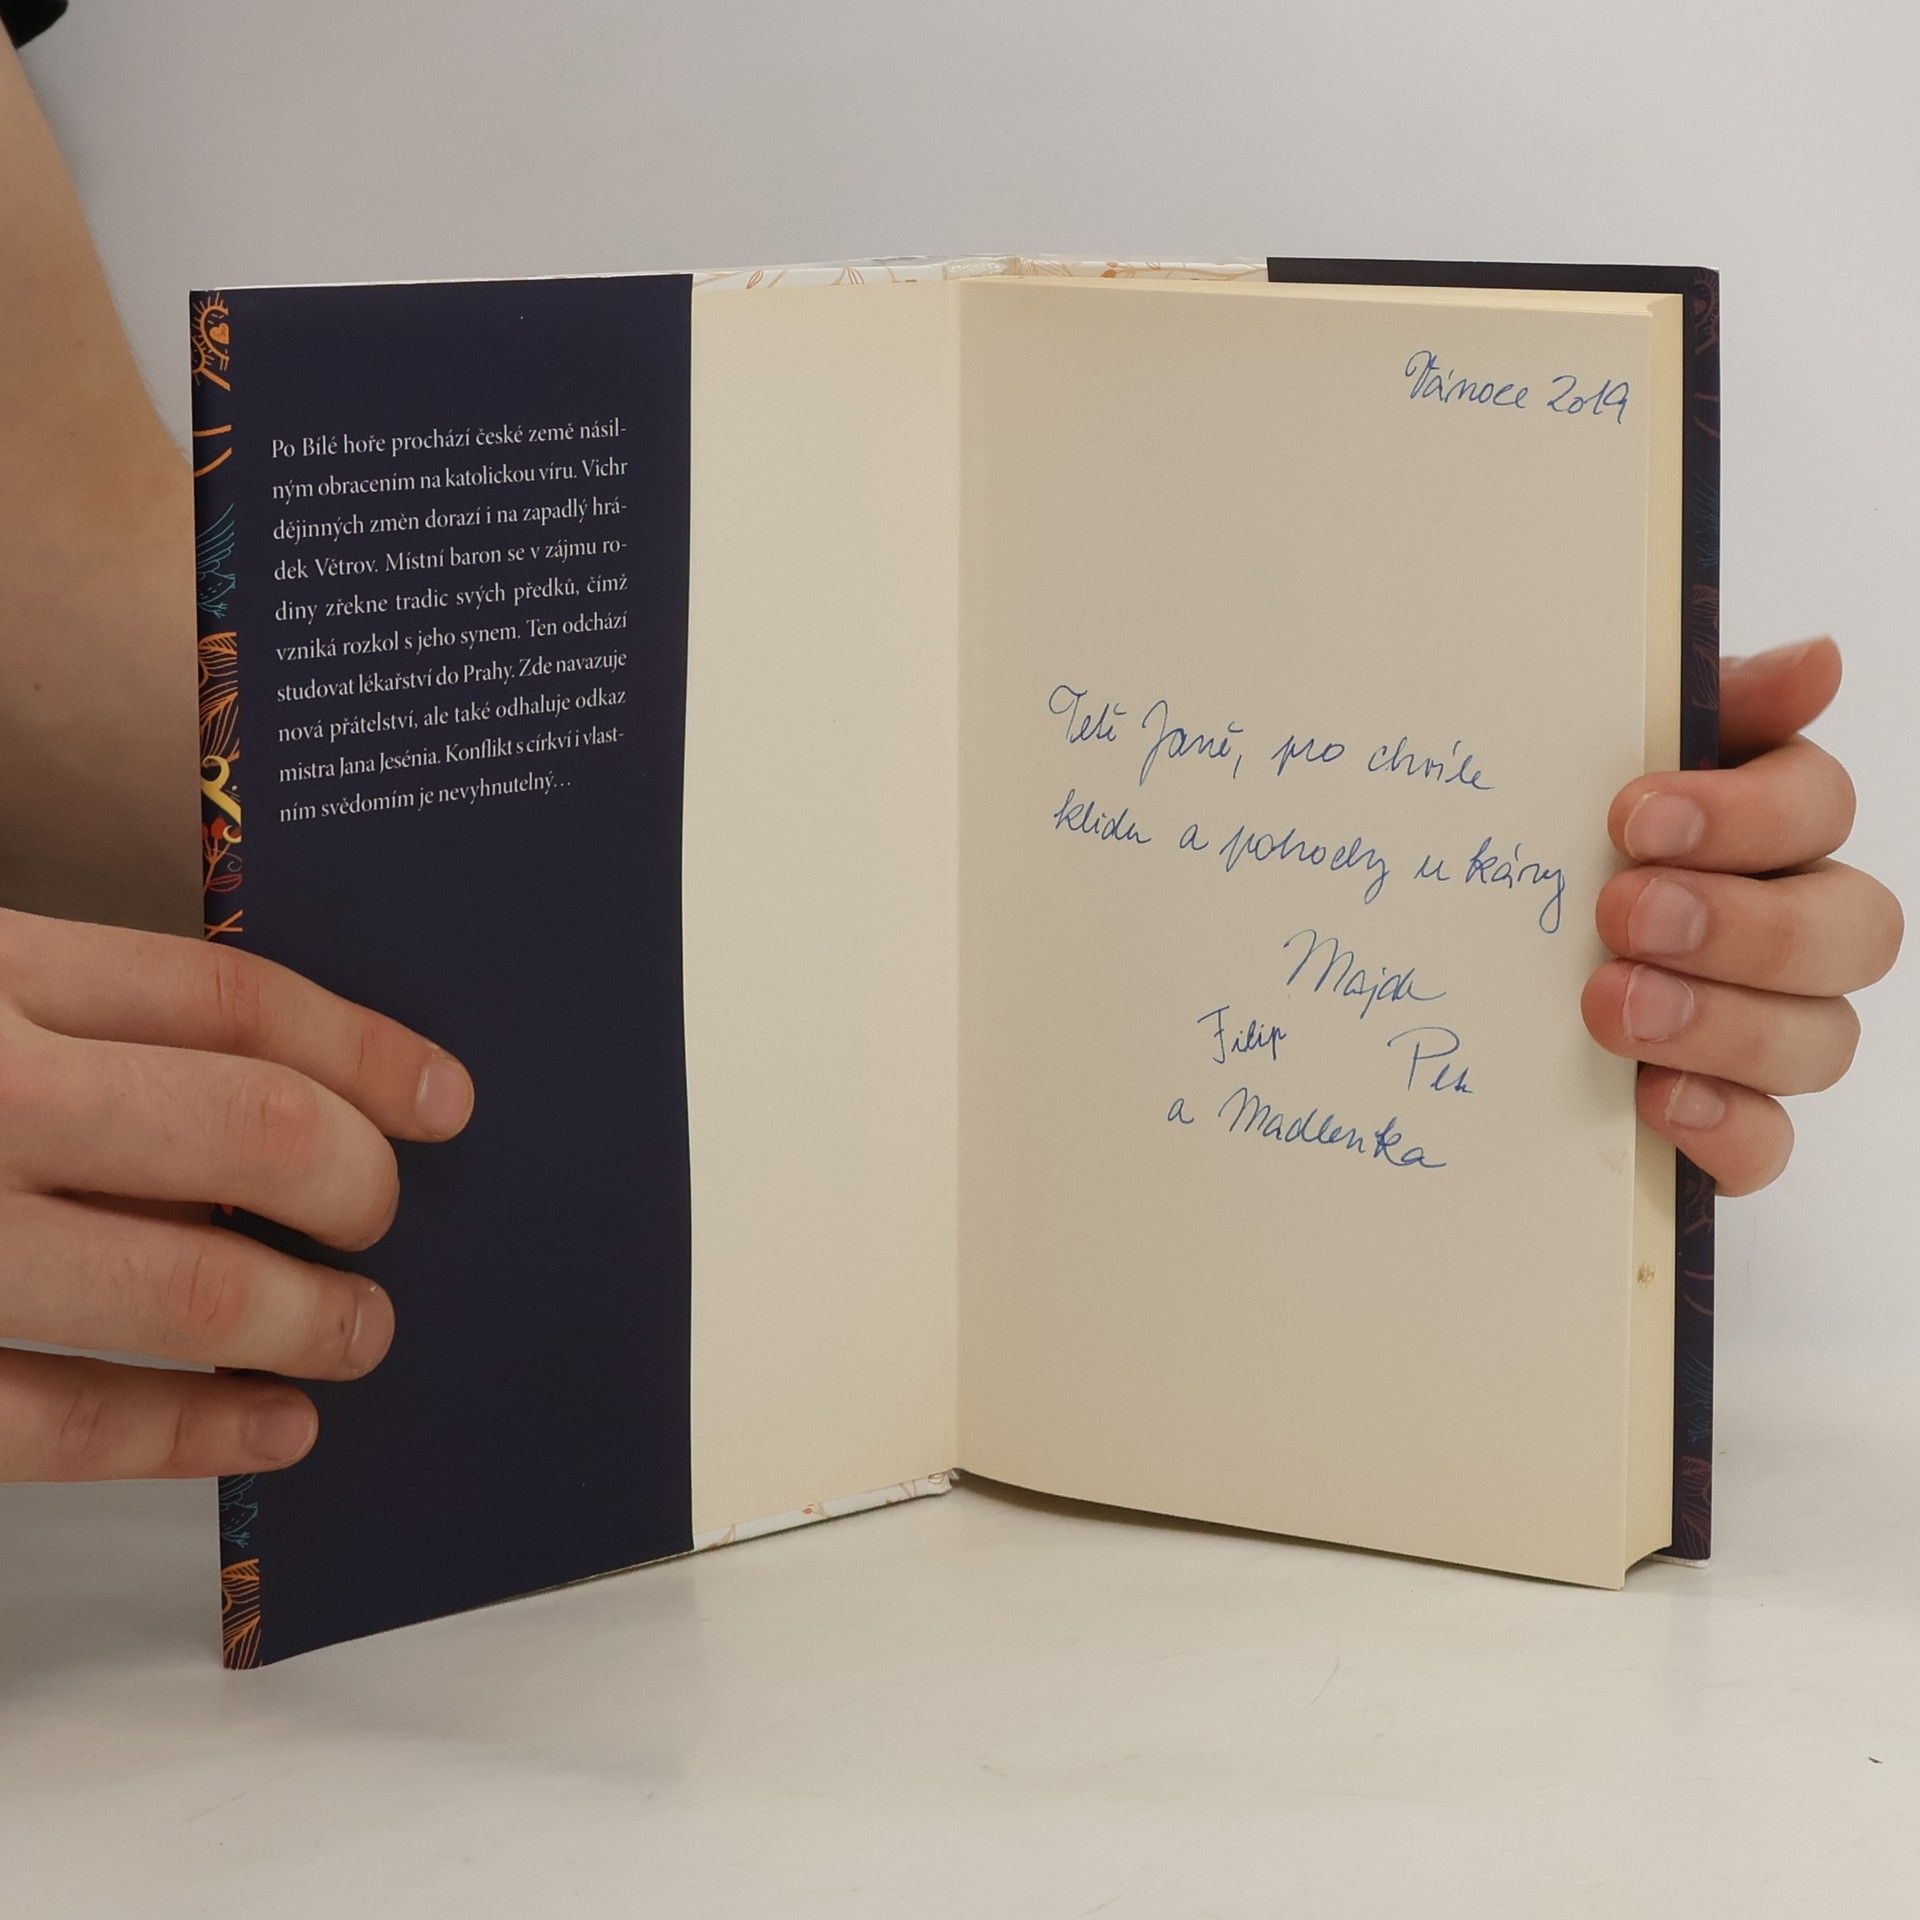 Po Bílé hoře prochází české země násil-
ným obracením na katolickou víru. Vichr
dějinných změn dorazí i na zapadlý hrá-
dek Větrov. Místní baron se v zájmu ro-
diny zřekne tradic svých předků, čímž
vzniká rozkol s jeho synem. Ten odchází
studovat lékařství do Prahy. Zde navazuje
nová přátelství, ale také odhaluje odkaz
mistra Jana Jesénia. Konflikt s církví i vlast-
ním svědomím je nevyhnutelný...
Vánoce 2019
Tetě Janě, pro chvíle
klidu a pohody u kávy
Majda
Filip
a Madlenka